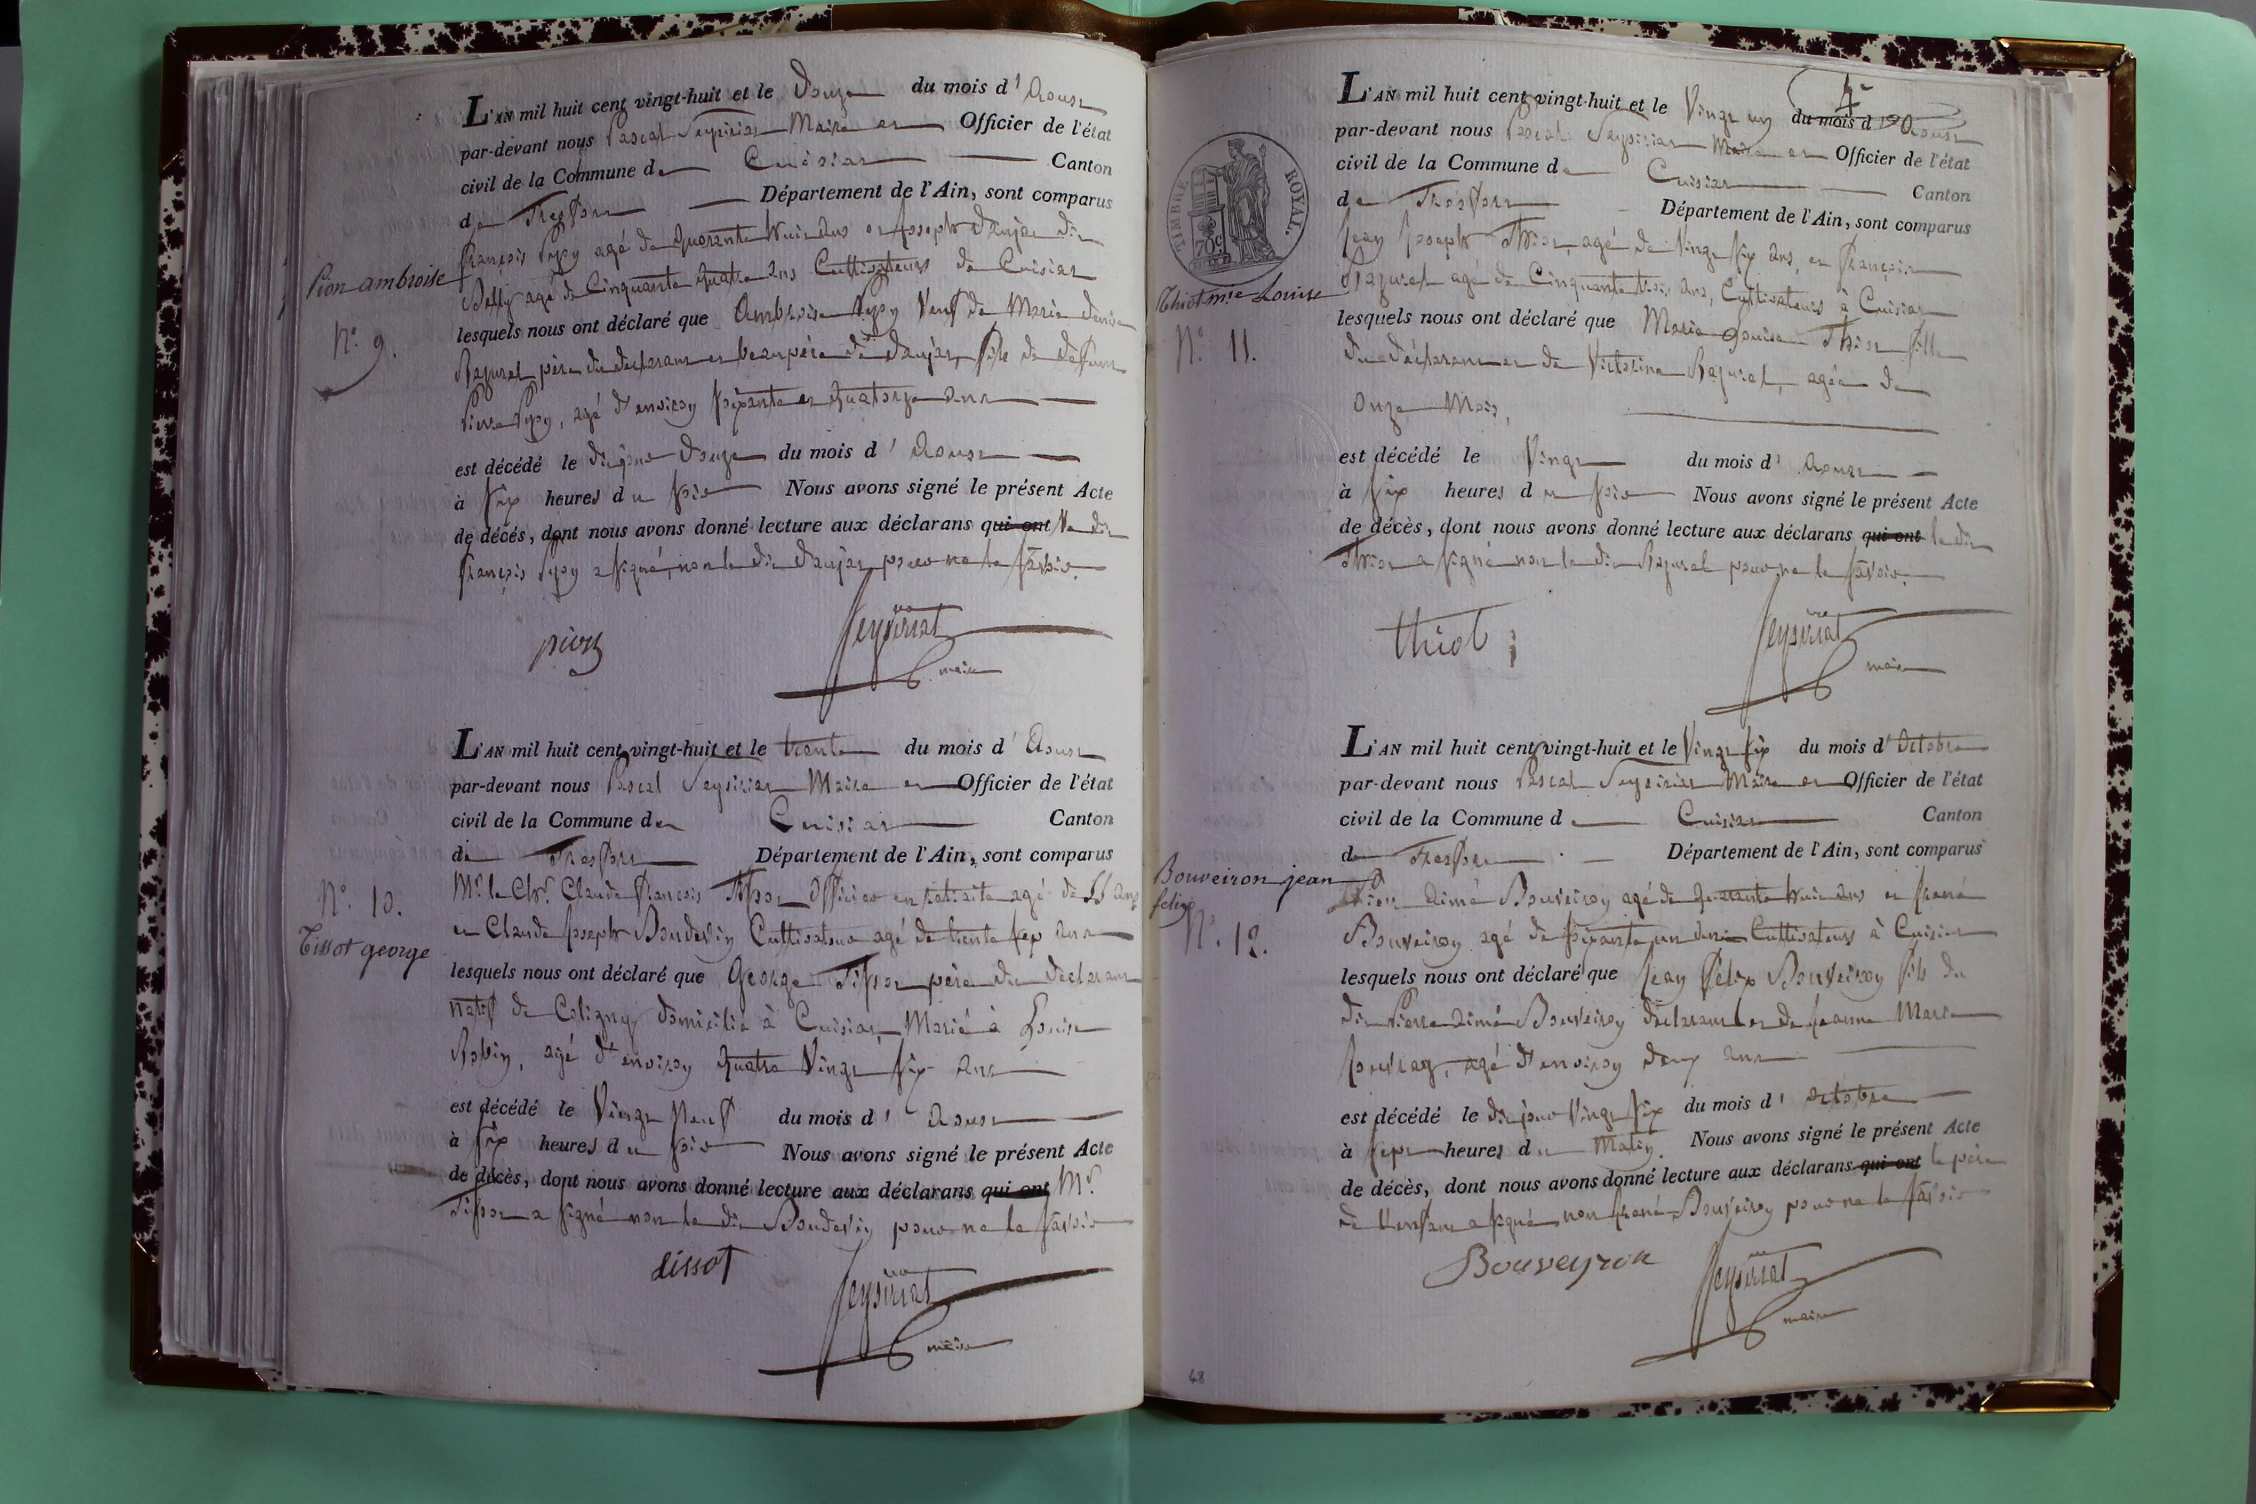 L'AN mil huit cent vingt-huit et le Douze du mois d'Aoust
par-devant nous Pascal Seyssiriat Maire et Officier de l'état
civil de la Commune de Cuisiat Canton
de Treffort Département de l'Ain, sont comparus
françois agé de Quarante huit ans et Joseph Daujat dit
agé de Cinquante quatre ans Cultivateurs de Cuisiat
Pion ambroise
lesquels nous ont déclaré que Ambroise Veuf de Marie denise
N.º 9.
Razurel père du déclarant et beaupère de Daujat, fils de deffunt
Pierre, agé d'environ soixante et Quatorze ans
est décédé le dit jour Douze du mois d'Aoust
à six heures du soir Nous avons signé le présent Acte
de décés, dont nous avons donné lecture aux déclarans qui ont le dit
françois a signé, non le dit Daujat pour ne le savoir.
pion
Seyssiriat
maire
L'AN mil huit cent vingt-huit et le trente du mois d'Aoust
par-devant nous Pascal Seyssiriat Maire et Officier de l'état
civil de la Commune de Cuisiat Canton
de Treffort Département de l'Ain, sont comparus
Mr. le Chr. Claude françois Tissot Officier en retraite agé de 55 ans
N.º 10.
et Claude Joseph Boudevin Cultivateur agé de trente sept ans
Tissot george
lesquels nous ont déclaré que George Tissot père du déclarant
natif de Coligny domicilié à Cuisiat, Marié à Louise
Robin, agé d'environ Quatre Vingt six ans
est décédé le Vingt Neuf du mois d'Aoust
à six heures du soir Nous avons signé le présent Acte
de décés, dont nous avons donné lecture aux déclarans qui ont Mr.
Tissot a signé non le dit Boudevin pour ne le savoir
tissot
Seyssiriat
maire
L'AN mil huit cent vingt-huit et le Vingt un du mois d'Aoust
par-devant nous Pascal Seyssiriat Maire et Officier de l'état
civil de la Commune de Cuisiat Canton
de Treffort Département de l'Ain, sont comparus
TIMBRE ROYAL.
70c
Jean Joseph Thiot, agé de Vingt six ans, et françois
Razurel agé de Cinquante trois ans, Cultivateurs à Cuisiat
Thiot mie Louise
lesquels nous ont déclaré que Marie Louise Thiot fille
N.º 11.
du déclarant et de Victorine Razurel, agée de
Onze Mois,
est décédé le Vingt du mois d'Aoust
à six heures du soir Nous avons signé le présent Acte
de décès, dont nous avons donné lecture aux déclarans qui ont le dit
Thiot a signé non le dit Razurel pour ne le savoir.
thiot
Seyssiriat
maire
L'AN mil huit cent vingt-huit et le Vingt six du mois d'Octobre
par-devant nous Pascal Seyssiriat Maire et Officier de l'état
civil de la Commune de Cuisiat Canton
de Treffort Département de l'Ain, sont comparus
Bouveiron jean
felix
Pierre Aimé Bouveiron agé de Quarante huit ans et
Bouveiron agé de soixante un ans Cultivateurs à Cuisiat
N.º 12.
lesquels nous ont déclaré que Jean félix Bouveiron fils du
dit Pierre Aimé Bouveiron déclarant et de Jeanne Marie
agé d'environ deux ans
est décédé le dit jour Vingt six du mois d'octobre
à sept heures du Matin. Nous avons signé le présent Acte
de décès, dont nous avons donné lecture aux déclarans qui ont le père
de l'enfant a signé non Bouveiron pour ne le savoir
Bouveyron
Seyssiriat
maire
48